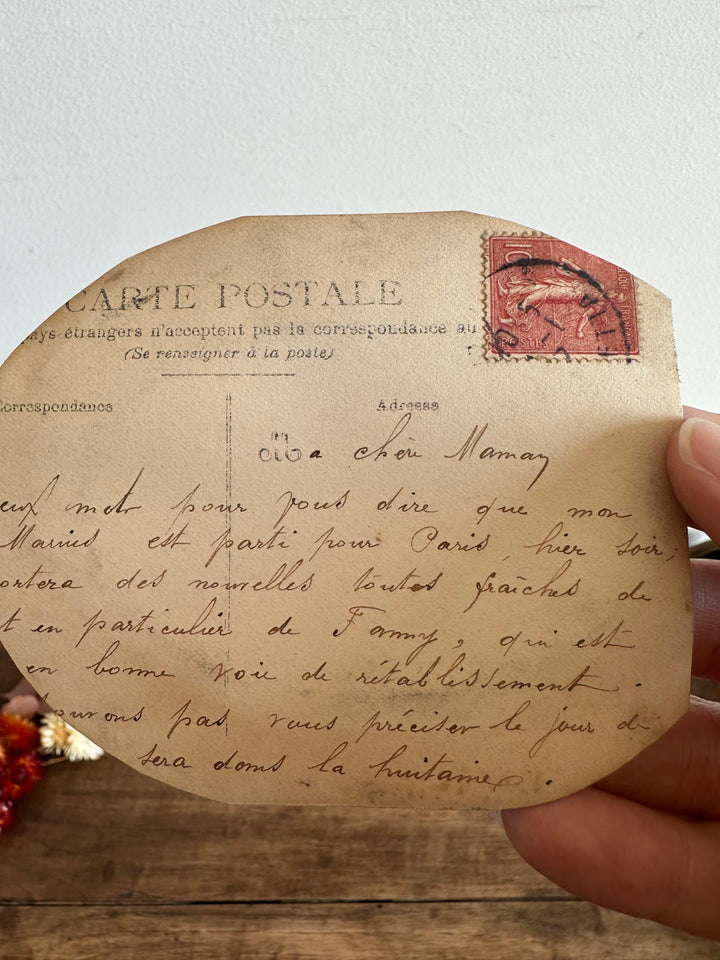 CARTE POSTALE
pays étrangers n'acceptent pas la correspondance au
(Se renseigner à la poste)
Correspondance
Adresse
10
POSTES
Ma chère Maman
mot pour vous dire que mon
Marius est parti pour Paris, hier soir;
ortera des nouvelles toutes fraîches de
t en particulier de Fanny, qui est
en bonne voie de rétablissement.
ouvons pas vous préciser le jour de
sera dans la huitaine.